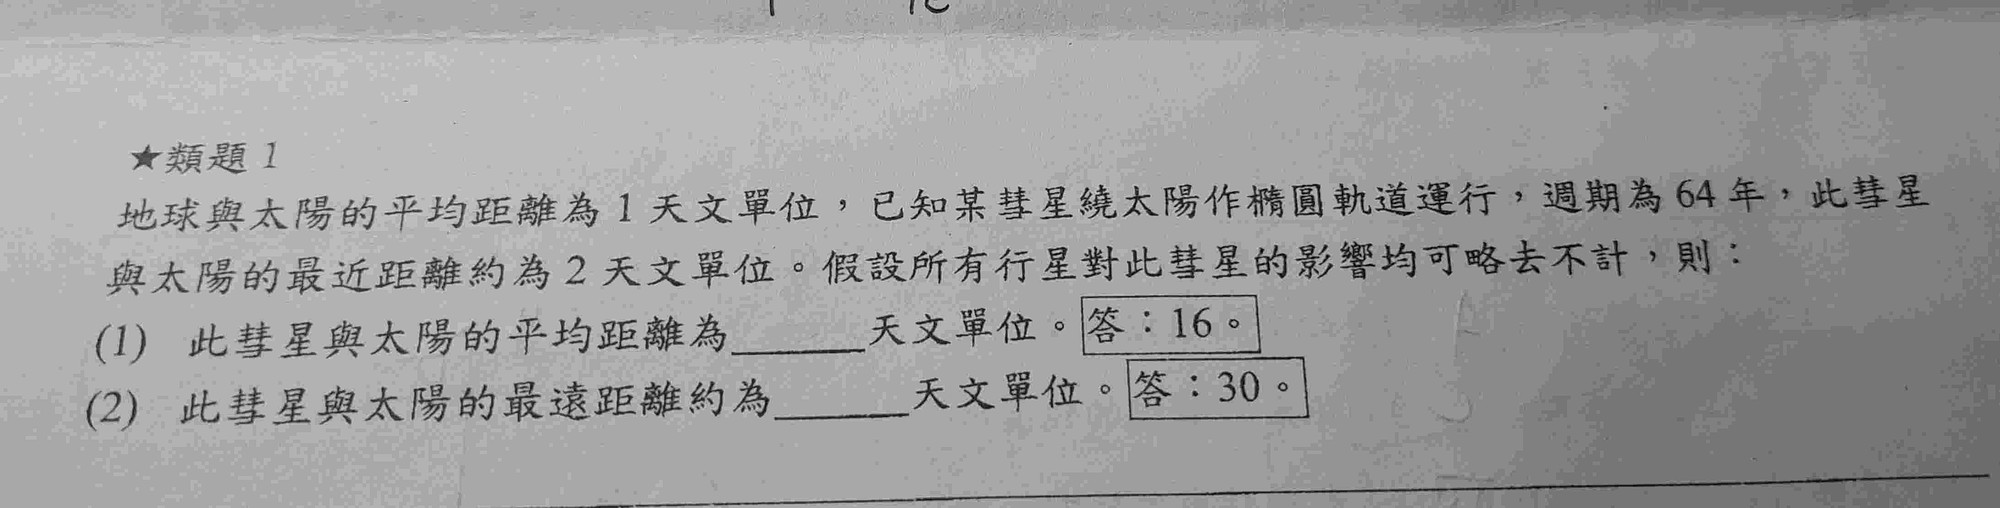 ★類題 1
地球與太陽的平均距離為 1 天文單位，已知某彗星繞太陽作橢圓軌道運行，週期為 64 年，此彗星
與太陽的最近距離約為 2 天文單位。假設所有行星對此彗星的影響均可略去不計，則：
(1) 此彗星與太陽的平均距離為______天文單位。答：16。
(2) 此彗星與太陽的最遠距離約為______天文單位。答：30。